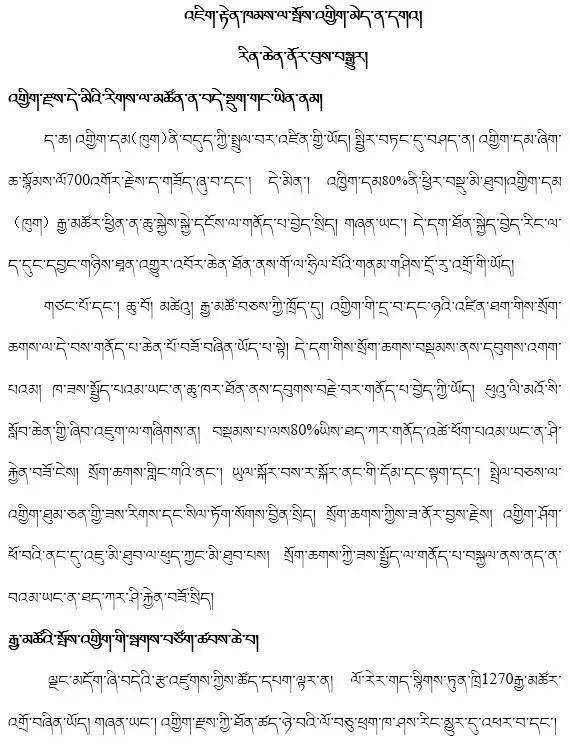 འཇིག་རྟེན་ཁམས་ལ་སྤོས་འགྱིག་མེད་ན་དགའ།
རིན་ཆེན་ནོར་བུས་བསྒྱུར།
འགྱིག་རྫས་དེ་མིའི་རིགས་ལ་མཚོན་ན་བདེ་སྡུག་གང་ཡིན་ནམ།
ད་ཆ། འགྱིག་དམ(ཁུག)ནི་བདུད་ཀྱི་སྤྲུལ་བར་འཛིན་གྱི་ཡོད། སྤྱིར་བཏང་དུ་བཤད་ན། འགྱིག་དམ་ཞིག་
ཆ་སྙོམས་ལོ700འགོར་རྗེས་ད་གཟོད་ཞུ་བ་དང་། དེ་མིན། འགྱིག་དམ80%ནི་ཕྱིར་བསྡུ་མི་ཐུབ།འགྱིག་དམ
(ཁུག) རྒྱ་མཚོར་ཕྱིན་ན་ཆུ་སྐྱེས་སྐྱེ་དངོས་ལ་གནོད་པ་བྱེད་སྲིད། གཞན་ཡང་། དེ་དག་ཐོན་སྐྱེད་བྱེད་རིང་ལ་
ད་དུང་དབྱང་གཉིས་ཐཱན་འགྱུར་འབོར་ཆེན་ཐོན་ནས་གོ་ལ་ཧྲིལ་པོའི་གནམ་གཤིས་དྲོ་རུ་འགྲོ་གི་ཡོད།
གཙང་པོ་དང་། ཆུ་བོ། མཚེའུ། རྒྱ་མཚོ་བཅས་ཀྱི་ཁྲོད་དུ། འགྱིག་གི་དྲ་བ་དང་ཉའི་འཛིན་ཐག་གིས་སྲོག་
ཆགས་ལ་དེ་བས་གནོད་པ་ཆེན་པོ་བཟོ་བཞིན་ཡོད་པ་སྟེ། དེ་དག་གིས་སྲོག་ཆགས་བསྡམས་ནས་དབུགས་འགག་
པའམ། ཁ་ཟས་སྤྱོད་པའམ་ཡང་ན་ཆུ་ཁར་ཐོན་ནས་དབུགས་བརྗེ་བར་གནོད་པ་བྱེད་ཀྱི་ཡོད། ཕུའུ་ལི་མའོ་སི་
སློབ་ཆེན་གྱི་ཞིབ་འཇུག་ལ་གཞིགས་ན། བསྡམས་པ་ལས80%ཡིས་ཐད་ཀར་གནོད་འཚེ་ཕོག་པའམ་ཡང་ན་ཤི་
རྐྱེན་བཟོ་ངེས། སྲོག་ཆགས་གླིང་གའི་ནང་། ཡུལ་སྐོར་བས་ར་སྐོར་ནང་གི་དོམ་དང་སྟག་དང་། སྤྲེལ་བཅས་ལ་
འགྱིག་ཐུམ་ཅན་གྱི་ཟས་རིགས་དང་སིལ་ཏོག་སོགས་བྱིན་སྲིད། སྲོག་ཆགས་ཀྱིས་ཟ་ནོར་བྱས་རྗེས། འགྱིག་ཤོག་
ཕོ་བའི་ནང་དུ་འཇུ་མི་ཐུབ་ལ་ཕུད་ཀྱང་མི་ཐུབ་པས། སྲོག་ཆགས་ཀྱི་ཟས་སྤྱོད་ལ་གནོད་པ་བསྐྱལ་ནས་ནད་ན་
བའམ་ཡང་ན་ཐད་ཀར་ཤི་རྐྱེན་བཟོ་སྲིད།
རྒྱ་མཚོའི་སྤོས་འགྱིག་གི་སྦགས་བཙོག་ཚབས་ཆེ་བ།
ལྗང་མདོག་ཞི་བདེའི་རྩ་འཛུགས་ཀྱིས་ཚོད་དཔག་ལྟར་ན། ལོ་རེར་གད་སྙིགས་ཏུན་ཁྲི1270རྒྱ་མཚོར་
འགྲོ་བཞིན་ཡོད། གཞན་ཡང་། འགྱིག་རྫས་ཀྱི་ཐོན་ཚད་ཉེ་བའི་ལོ་བཅུ་ཕྲག་ཁ་ཤས་རིང་མྱུར་དུ་འཕར་བ་དང་།